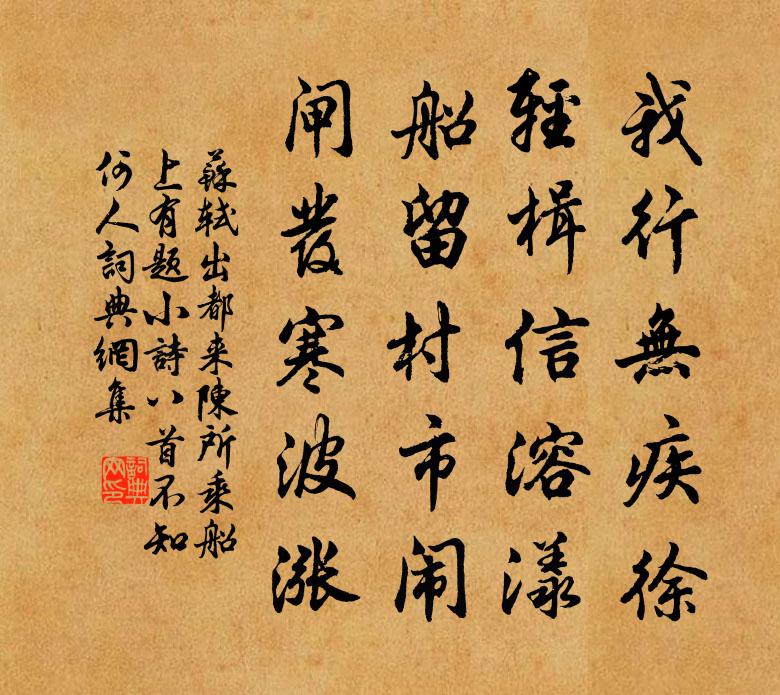 我行無疾徐
輕楫信溶漾
船留村市闹
闸發寒波漲
蘇軾出都来陳所乘船
上有题小詩八首不知
何人詞典網集
詞典网印